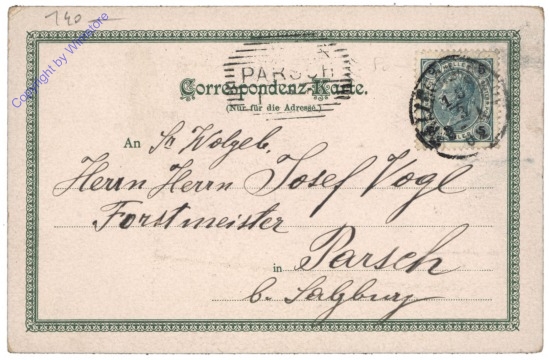 140
Copyright by Wienstore
PARSCH
Correspondenz-Karte.
(Nur für die Adresse.)
An Sr Wolgeb.
Herrn Herrn Josef Vogl
Forstmeister
in Parsch
b. Salzburg